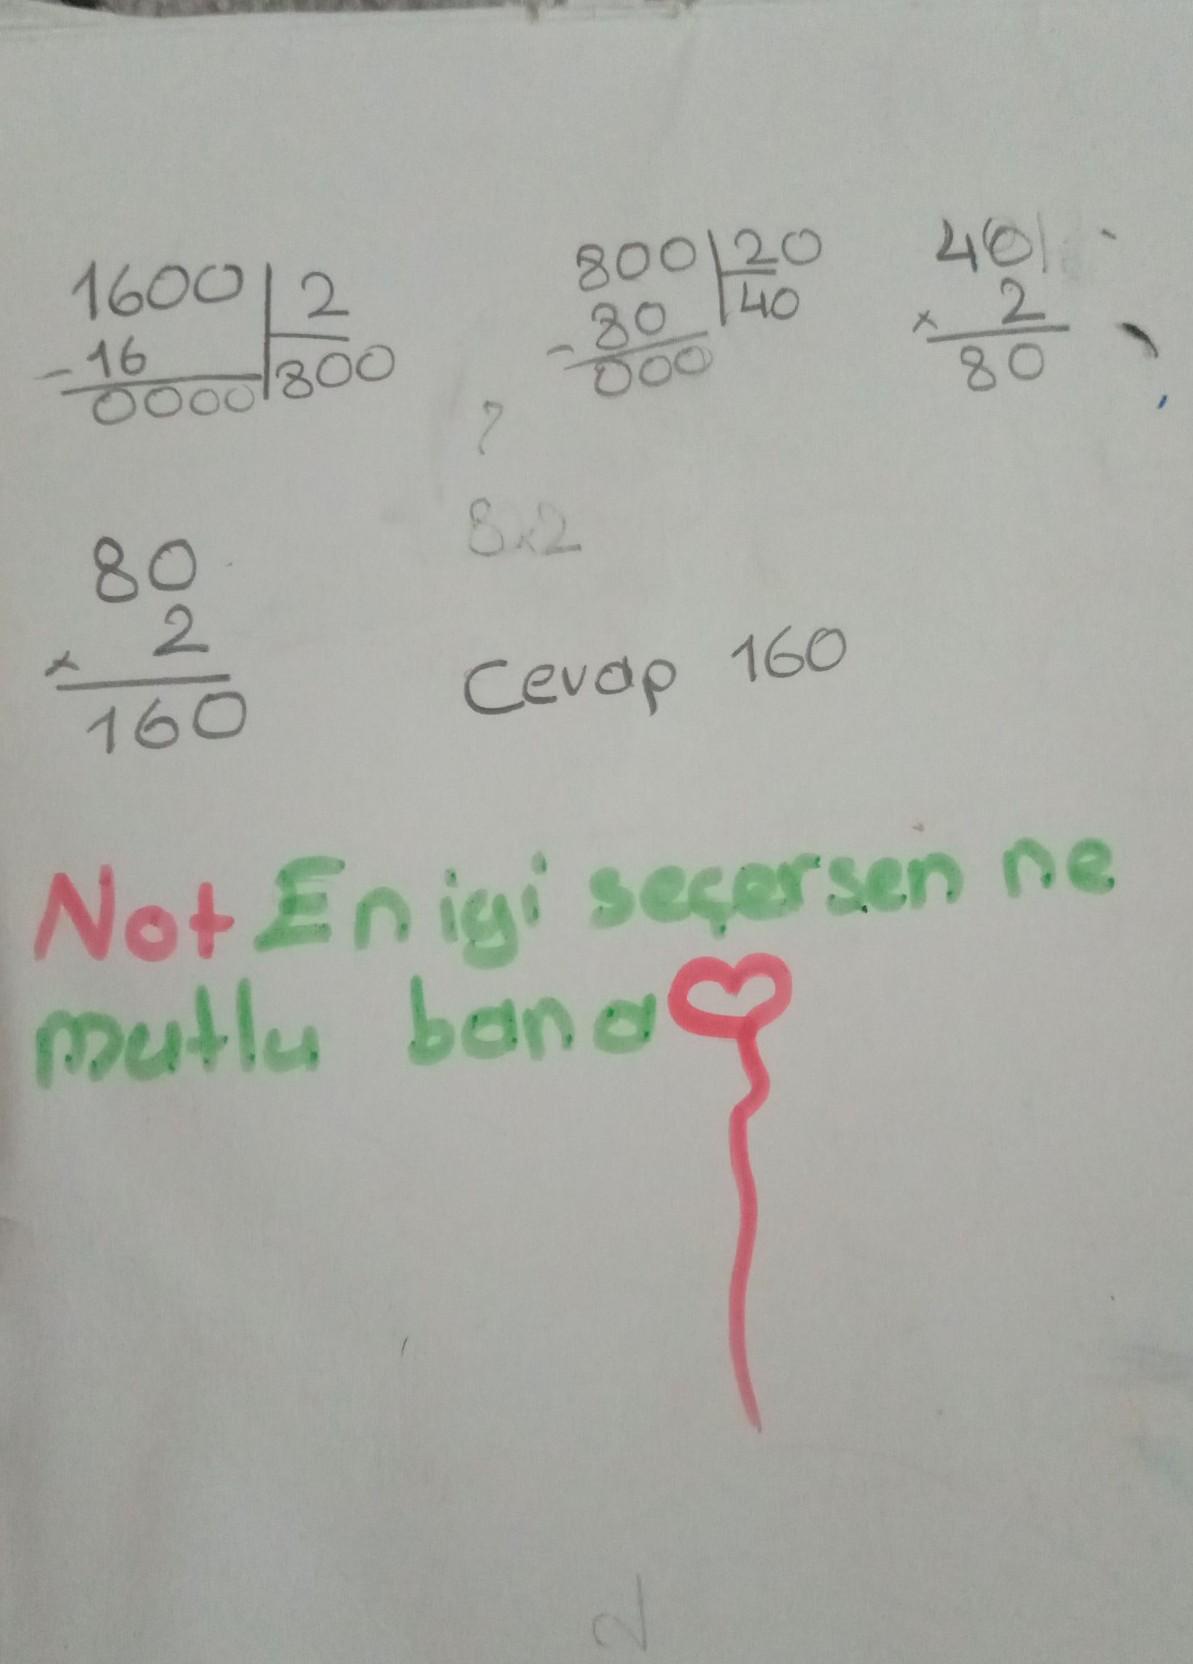 1600 2
-16 800
0000
800 20
-80 40
000
40
x 2
80
?
8x2
80
x 2
160
Cevap 160
Not En iyi seçersen ne
mutlu bana
2